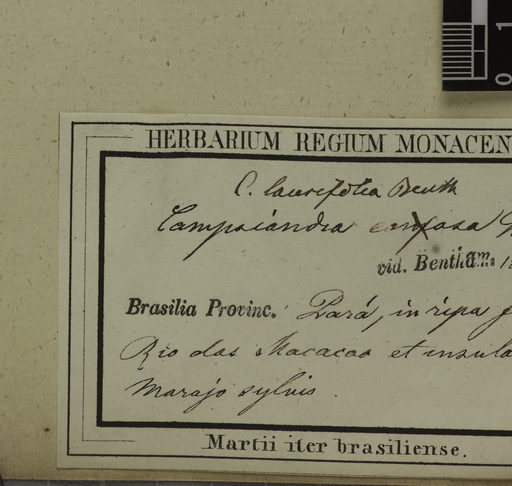 0 1
HERBARIUM REGIUM MONACEN
C. laurifolia Benth
Campsiandra
vid. Bentham. 18
Brasilia Provinc. Pará, in ripa
Rio das Macacos et insula
Marajo sylvis.
Martii iter brasiliense.